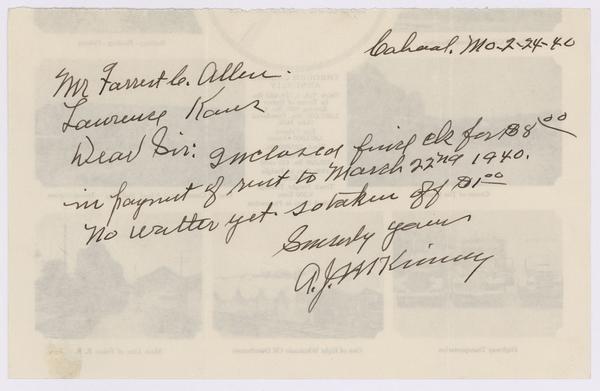 Cabool. Mo-2-24-40
Mr Forrest C. Allen.
Lawrense Kans
Dead Sir: Inclosed find ck for $8.00
in paymnt of rent to March 22nd 1940.
No watter yet. so taken off $1.00
Sincerly yours
A.J. McKinney